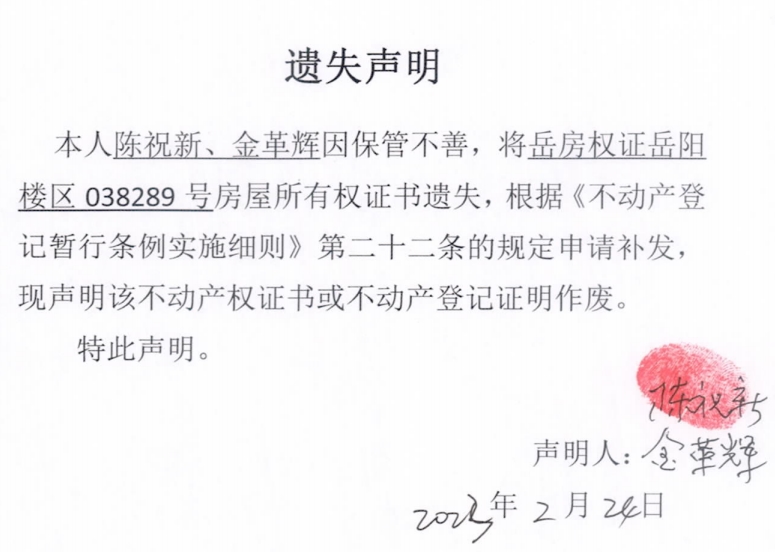 遗失声明
本人陈祝新、金革辉因保管不善，将岳房权证岳阳
楼区 038289 号房屋所有权证书遗失，根据《不动产登
记暂行条例实施细则》第二十二条的规定申请补发，
现声明该不动产权证书或不动产登记证明作废。
特此声明。
陈祝新
声明人：金革辉
2023年 2 月 24日